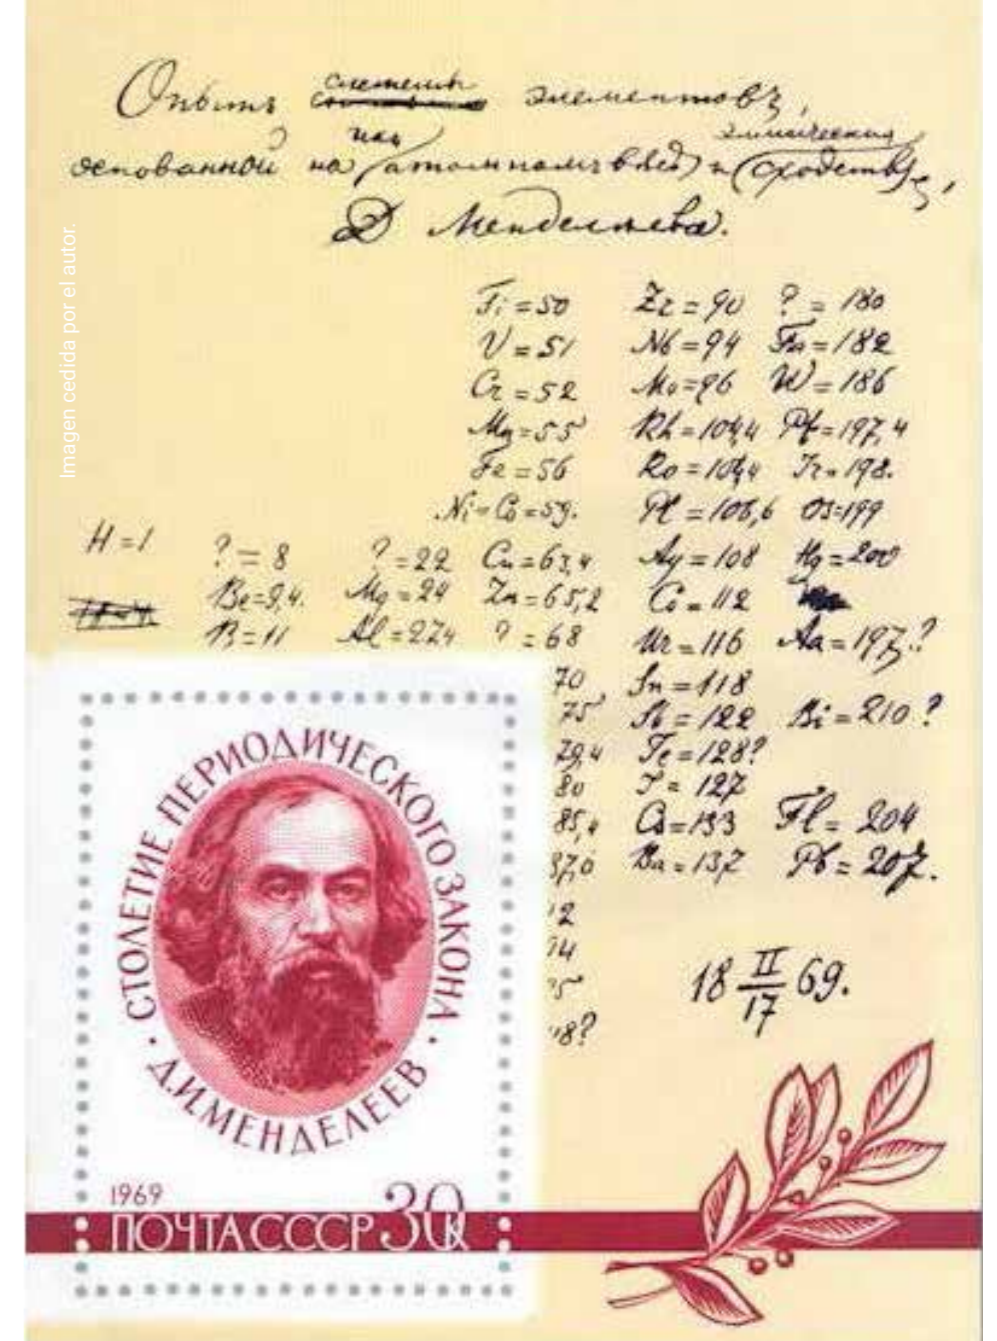 Опытъ системы элементовъ,
основанной на ихъ атомномъ вѣсѣ и химическомъ сходствѣ,
Д Менделѣева.
Imagen cedida por el autor.
Ti = 50 Zr = 90 ? = 180
V = 51 Nb = 94 Ta = 182
Cr = 52 Mo = 96 W = 186
Mn = 55 Rh = 104,4 Pt = 197,4
Fe = 56 Ro = 104,4 Ir = 198.
Ni = Co = 59. Pl = 106,6 Os = 199
H = 1 ? = 8 ? = 22 Cu = 63,4 Ag = 108 Hg = 200
Be = 9,4. Mg = 24 Zn = 65,2 Cd = 112
B = 11 Al = 27,4 ? = 68 Ur = 116 Au = 197?
70 Sn = 118
75 Sb = 122 Bi = 210?
79,4 Te = 128?
80 J = 127
85,4 Cs = 133 Tl = 204
87,0 Ba = 137 Pb = 207.
18 II/17 69.
СТОЛЕТИЕ ПЕРИОДИЧЕСКОГО ЗАКОНА
· Д.И.МЕНДЕЛЕЕВ ·
1969
ПОЧТА СССР 30 К